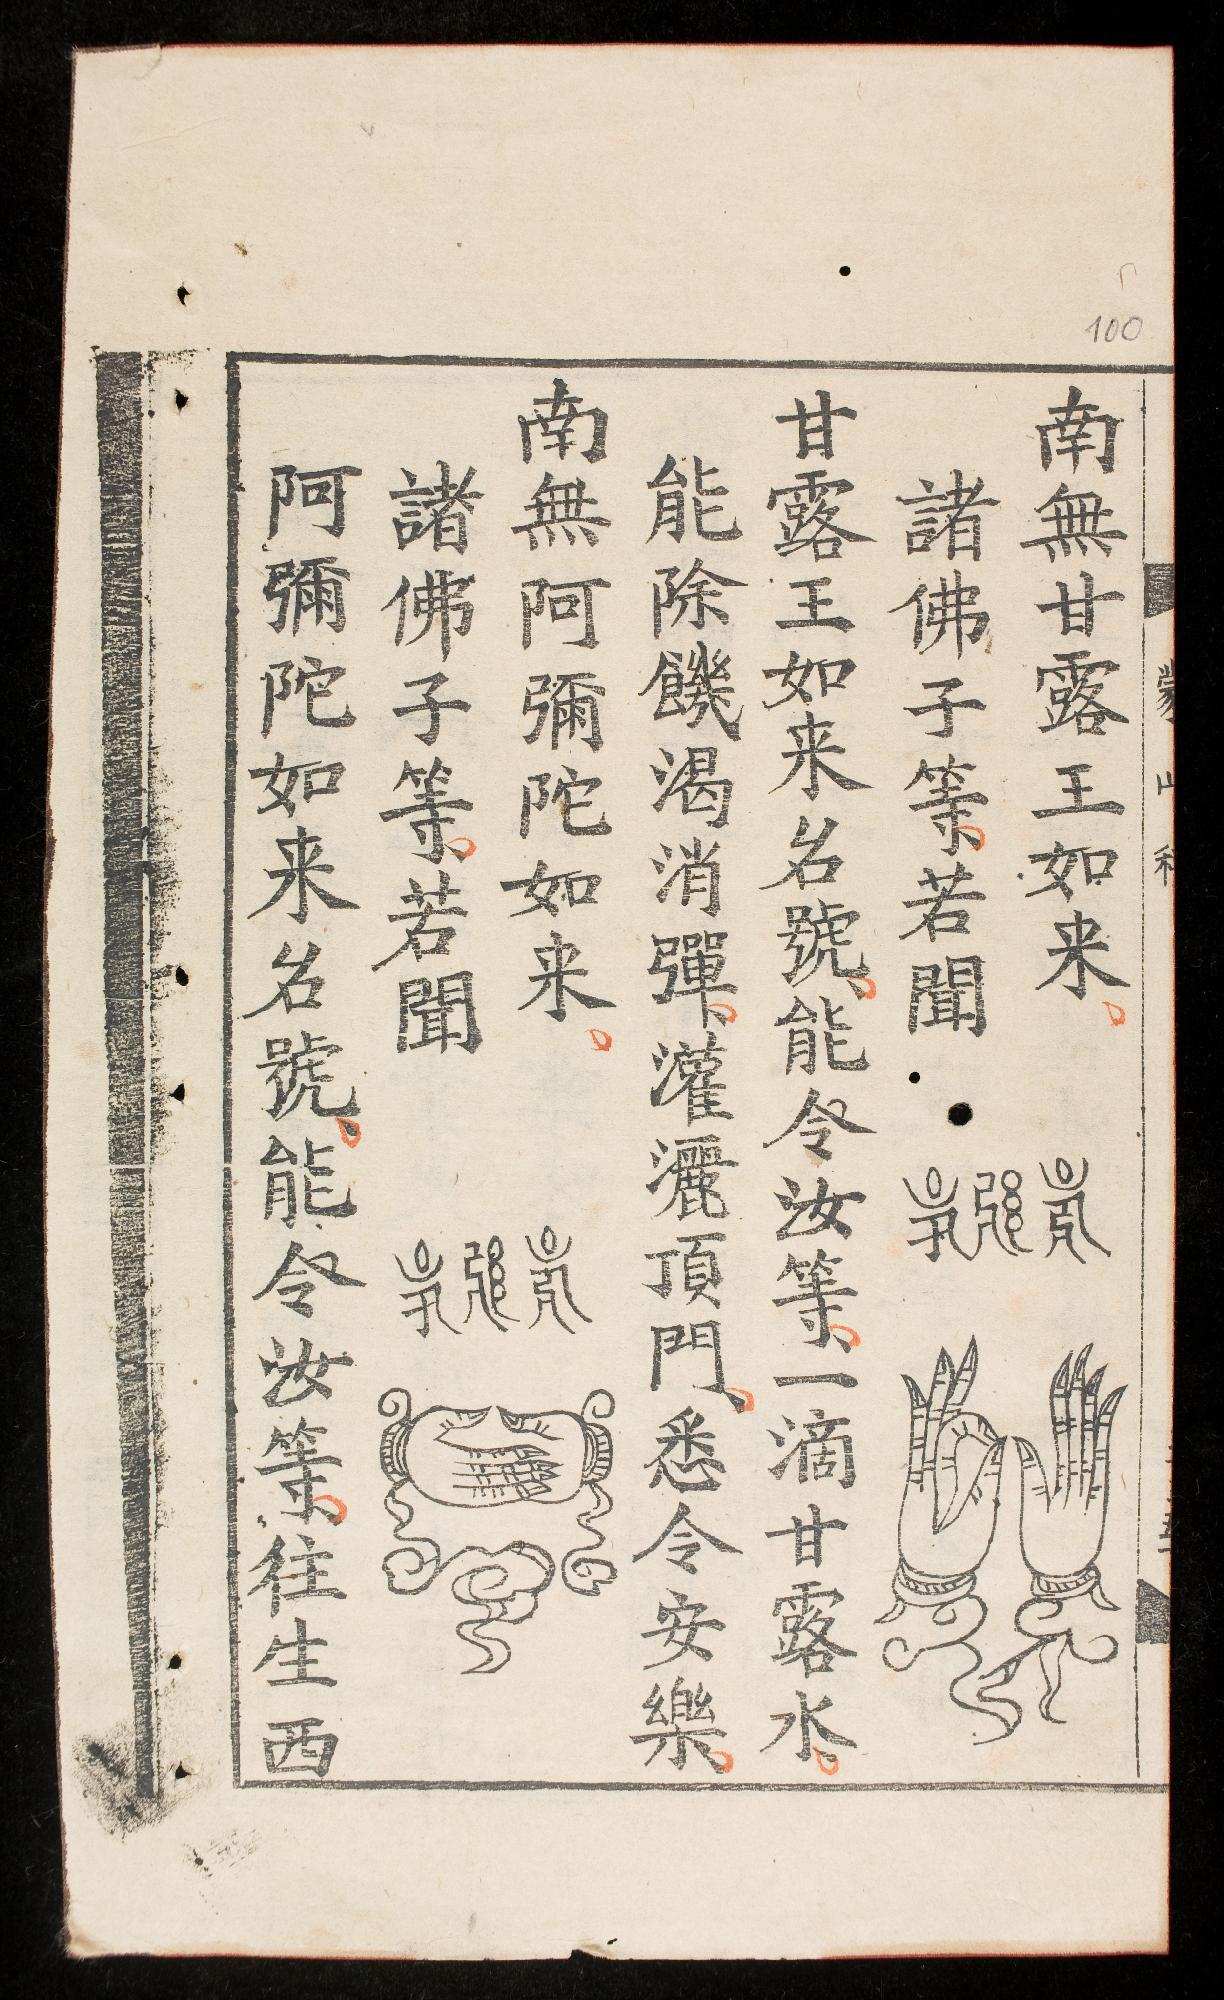 100
南無甘露王如来
諸佛子等若聞
甘露王如来名號能令汝等一滴甘露水
能除饑渴消彈灌灑頂門悉令安樂
南無阿彌陀如来
諸佛子等若聞
阿彌陀如来名號能令汝等往生西